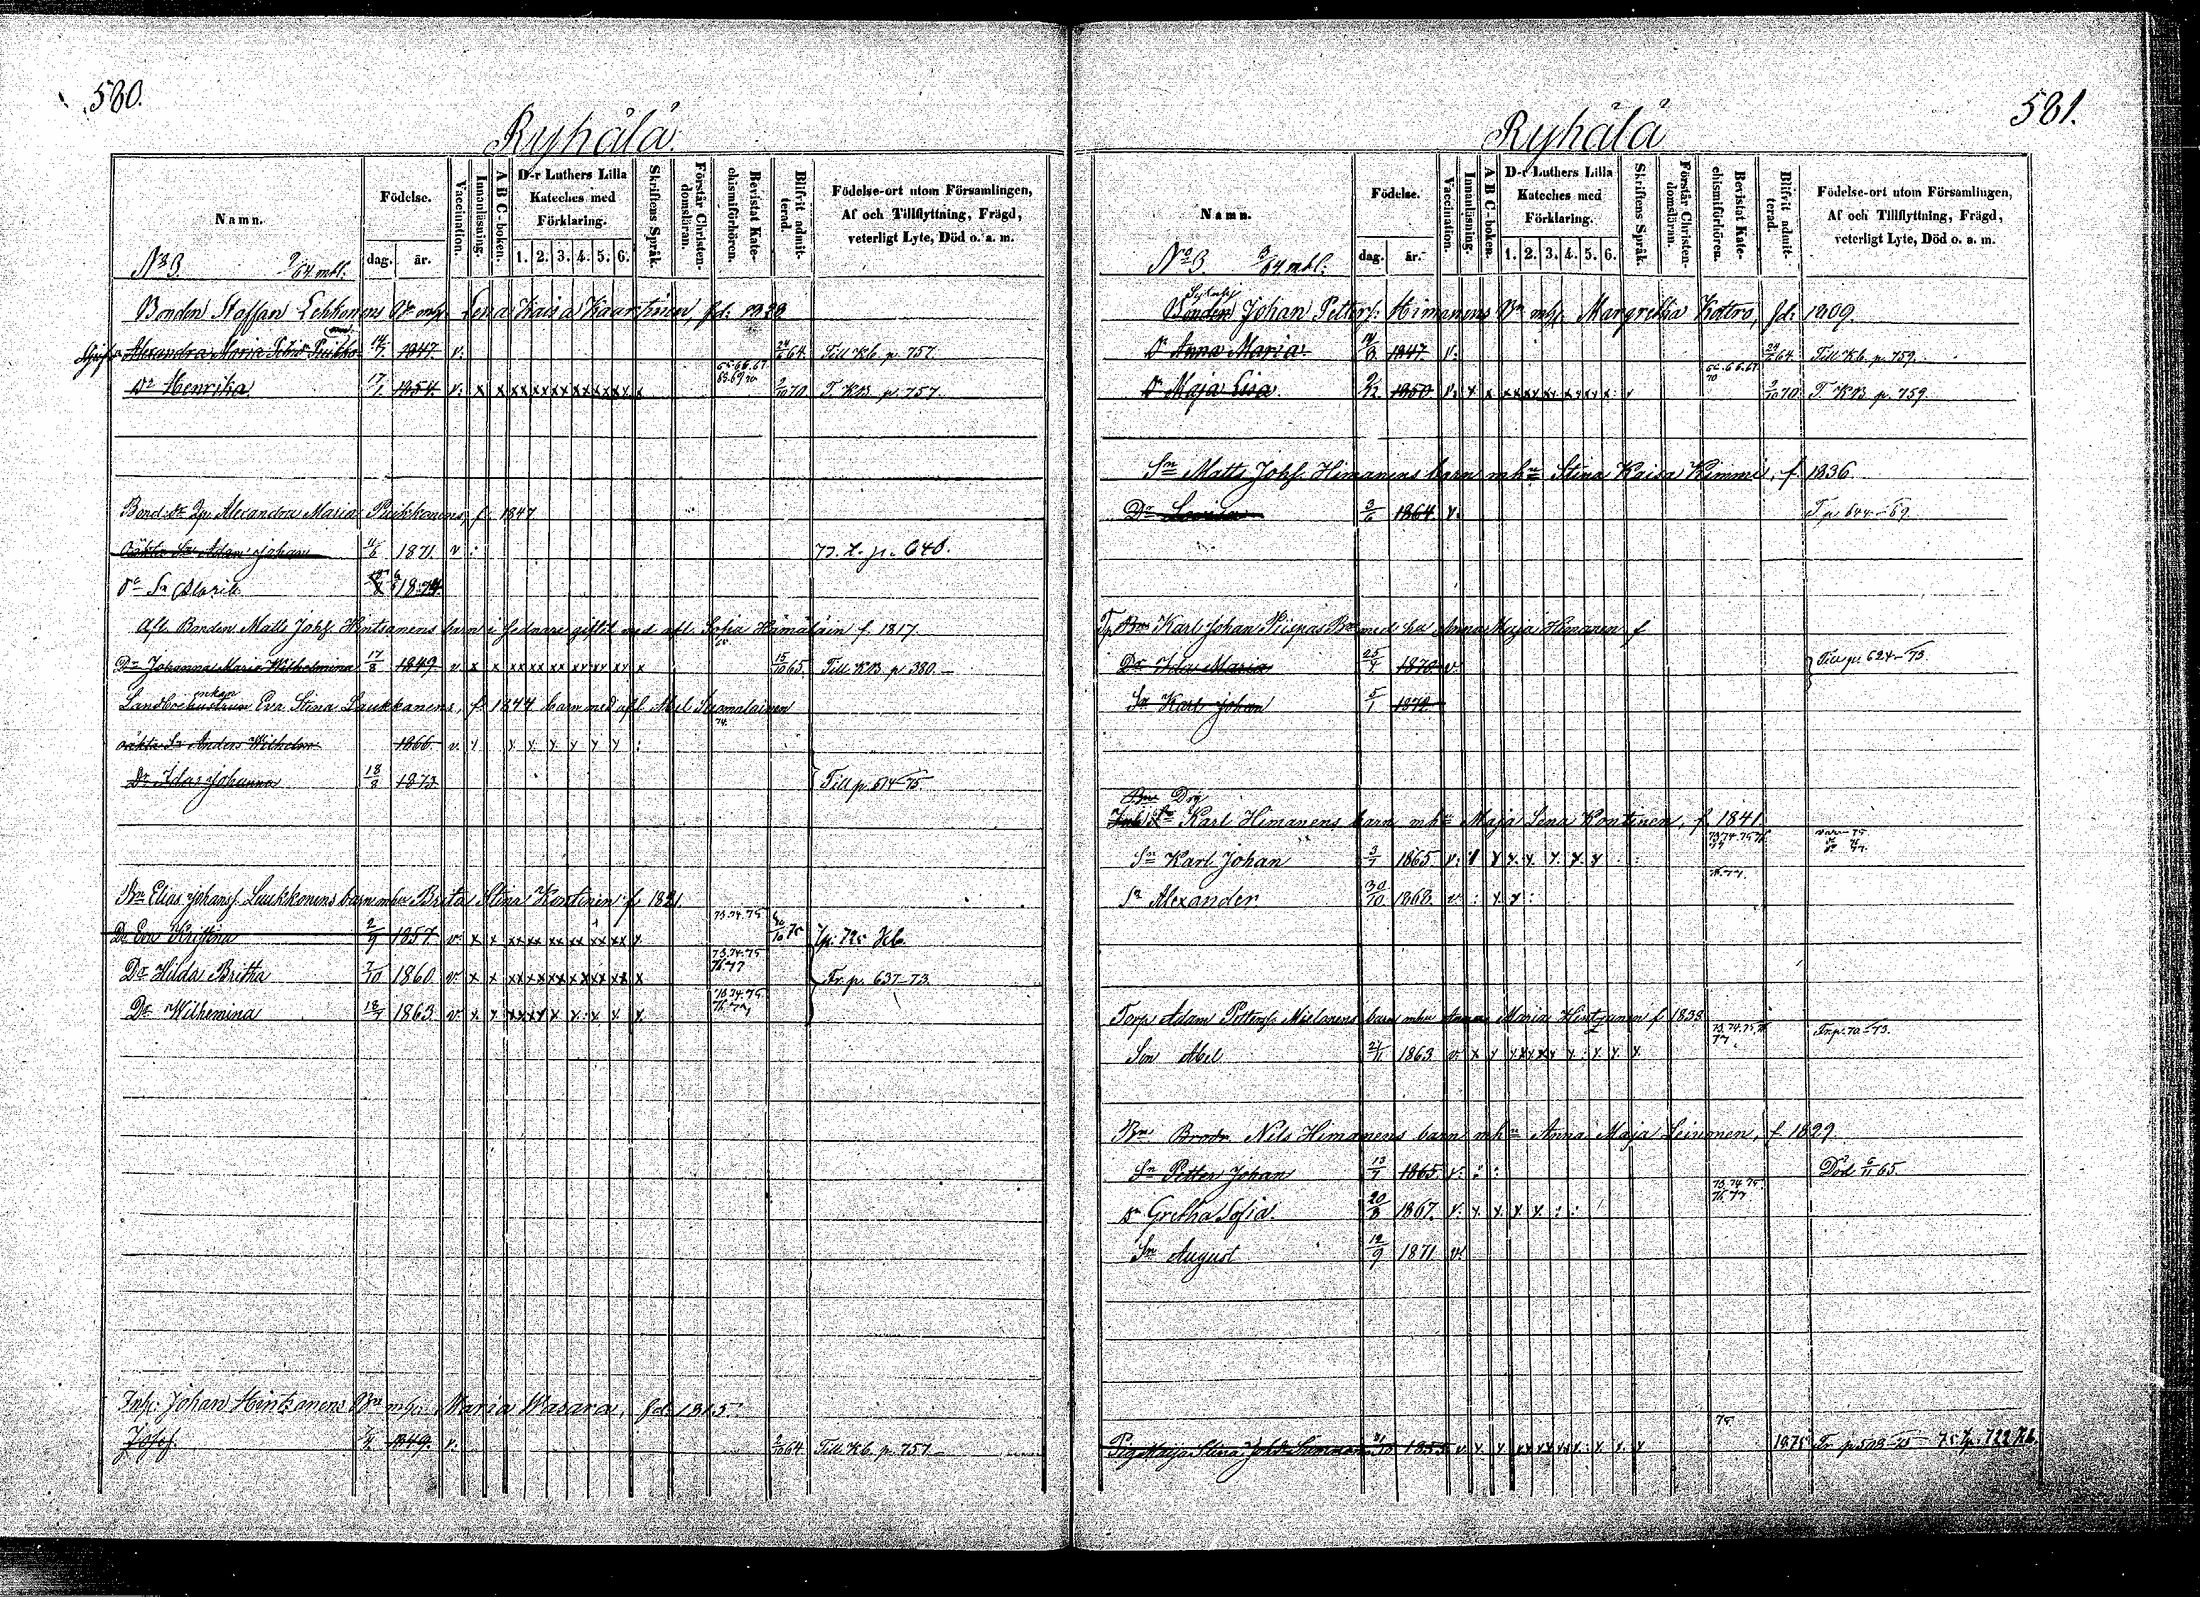 580.
Ryhälä.
Namn.
Födelse.
dag. år.
Vaccination.
Innanläsning.
A B C-boken.
D-r Luthers Lilla Kateches med Förklaring.
1. 2. 3. 4. 5. 6.
Skriftens Språk.
Förstår Christendomsläran.
Bevistat Katechismiförhören.
Blifvit admitterad.
Födelse-ort utom Församlingen, Af och Tillflyttning, Frägd, veterligt Lyte, Död o. a. m.
No 3. 9/64 mbl.
Bonden Staffan Lekkonens Bn mh Lena Kaisa Kaartinen, fd. 1828
Alexandra Maria 1847 v. 64. Till Kb. p. 757.
Dr Henrika 17/7 1854. v. x x xx xx xx xx xx xy x 65.66.67. 68.69.70 2/10 70 T. KB. p. 757.
Alexandra Maria Puhkonens f. 1847
oäkta Sn Adam Johan 11/6 1871. v : 73. t. p. 640.
Afl. Bonden Matts Johs. Hintsanens barn i fednare giftet med afl. Sofia Hämäläin f. 1817.
Dr Johanna Maria Wilhelmina 17/8 1849 v. x x xx xx xx xy xy xy x 15/10 65. Till KB. p. 380.
Landboenkan Eva Stina Laukkanens, f. 1844 barn med afl. Suomalainen
74.
oäkta Sn Anders Wilhelm 1866. v. y y y y y y y :
Dr Ida Johanna 18/8 1873 Till p. 614-75.
Bn Elias Johans. Laukkonens barn m hu Brita Stina Kontinen f. 1821.
Dr Eva Kristina 2/9 1857. v. x x xx xx xx xx xx xx x. 73.74.75 10 75 p. 725 Kb.
Dr Hilda Britha 7/10 1860 v. x x xx xx xx xx xx xx x 73.74.75 76.77 Fr. p. 637-73.
Dr Wilhemina 18/7 1863. v. x. x. xx xy x x. x. x. x. 73.74.75. 76.77
Inh. Johan Hintsanens Bn mh. Maria Wasara, fd. 1815.
Josef. 1849. v. 64. Till Kb. p. 757.
581.
Ryhälä
Namn.
Födelse.
dag. år.
Vaccination.
Innanläsning.
A B C-boken.
D-r Luthers Lilla Kateches med Förklaring.
1. 2. 3. 4. 5. 6.
Skriftens Språk.
Förstår Christendomsläran.
Bevistat Katechismiförhören.
Blifvit admitterad.
Födelse-ort utom Församlingen, Af och Tillflyttning, Frägd, veterligt Lyte, Död o. a. m.
No 3. 9/64 mbl.
Bonden Johan Petters. Himanens Bn mh. Margretha Kottro, fd. 1809.
Dr Anna Maria. 1847 v. 64 Till Kb. p. 759.
Dr Maja Lisa. 9/12. 1850 v. x x xx xx xy xy xy x. y 65.66.67. 70 2/10 70. T. KB. p. 759.
Sn Matts Johs. Himanens barn m hu Stina Kaisa Kimmi, f. 1836.
Dr Lovisa 3/6 1864. v. T. p. 644-69.
Karl Johan Piispas Bn med hu Anna Maja Himanen f
Dr Ida Maria 25/4 1870. v. Till p. 624-73
Sn Karl Johan 5/1 1872.
Karl Himanens barn m hu Maja Lena Kontinen, f. 1841.
Sn Karl Johan 3/1 1865 v. y y. y. y. y. y. 73.74.75.76 77
Sn Alexander 30/10 1868. v. : y. y : 76.77.
Torp. Adam Petters. Mielonens barn m hu Anna Maria Hintsanen f. 1838
Son Abel 21/11 1863. v. x y y.xyxy y. : y. y. x 73.74.75.76 77 Fr. p. 70-73.
Bns Brodr Nils Himanens barn m hu Anna Maja Leinonen, f. 1829.
Sn Petter Johan 13/7 1865. v. : : Död 6/11 65.
Dr Gretha Sofia. 20/8 1867. v. y. x. y. x. x : : 73.74.75. 76.77
Sn August 12/9 1871 v.
Pig. Maja Stina 1855 v. x. y xx xx xx. x. x. x 75 1875 Fr. p. 503-75 75. t. p. 722 Kb.